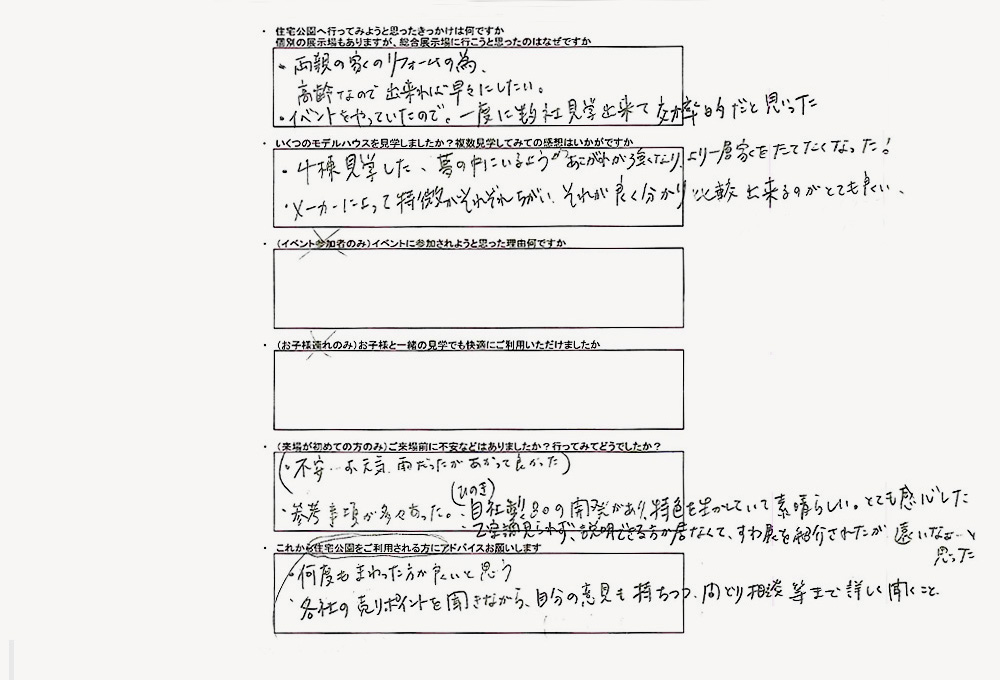 ・ 住宅公園へ行ってみようと思ったきっかけは何ですか
個別の展示場もありますが、総合展示場に行こうと思ったのはなぜですか
・両親の家のリフォームの為、
高齢なので出来れば早々にしたい。
・イベントをやっていたので。一度に数社見学出来て効率的だと思った
・ いくつのモデルハウスを見学しましたか？複数見学してみての感想はいかがですか
・4棟見学した、夢の中にいるよう あこがれが強くなり、より一層家をたてたくなった！
・メーカーによって特徴がそれぞれちがい、それが良く分かり 比較出来るのがとても良い、
・ （イベント参加者のみ）イベントに参加されようと思った理由何ですか
・ （お子様連れのみ）お子様と一緒の見学でも快適にご利用いただけましたか
・ （来場が初めての方のみ）ご来場前に不安などはありましたか？行ってみてどうでしたか？
（・不安…お天気、雨だったがあがって良かった）
（ひのき）
・参考事項が多々あった。：自社製品の開発があり、特色を生かしていて素晴らしい。とても感心した
・ 見られず、説明できる方が居なくて、すわ展を紹介されたが 遠いなぁ…と
思った
・ これから住宅公園をご利用される方にアドバイスお願いします
・何度もまわった方が良いと思う
・各社の売りポイントを聞きながら、自分の意見も持ちつつ、間どり相談等まで詳しく聞くこと、